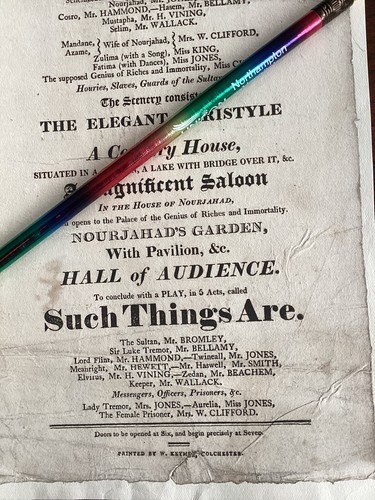 Nourjahad, Mr. BELLAMY,
Cosro, Mr. HAMMOND,—Hasem, Mr. BELLAMY,
Mustapha, Mr. H. VINING,
Selim, Mr. WALLACK.
Mandane, } Wife of Nourjahad, { Mrs. W. CLIFFORD.
Azame,
Zulima (with a Song) Miss KING,
Fatima (with Dances), Miss JONES,
The supposed Genius of Riches and Immortality, Miss
Houries, Slaves, Guards of the
The Scenery
Northampton
THE ELEGANT
A House,
SITUATED IN A A LAKE WITH BRIDGE OVER IT, &c.
Magnificent Saloon
IN THE HOUSE OF NOURJAHAD,
opens to the Palace of the Genius of Riches and Immortality.
NOURJAHAD'S GARDEN,
With Pavilion, &c.
HALL of AUDIENCE.
To conclude with a PLAY, in 5 Acts, called
Such Things Are.
The Sultan, Mr. BROMLEY,
Sir Luke Tremor, Mr. BELLAMY,
Lord Flint, Mr. HAMMOND,—Twineall, Mr. JONES,
Meanright, Mr. HEWETT,—Mr. Haswell, Mr. SMITH,
Elvirus, Mr. H. VINING,—Zedan, Mr. BEACHEM,
Keeper, Mr. WALLACK.
Messengers, Officers, Prisoners, &c.
Lady Tremor, Mrs. JONES,—Aurelia, Miss JONES,
The Female Prisoner, Mrs. W. CLIFFORD.
Doors to be opened at Six, and begin precisely at Seven.
PRINTED BY W. KEYMER, COLCHESTER.